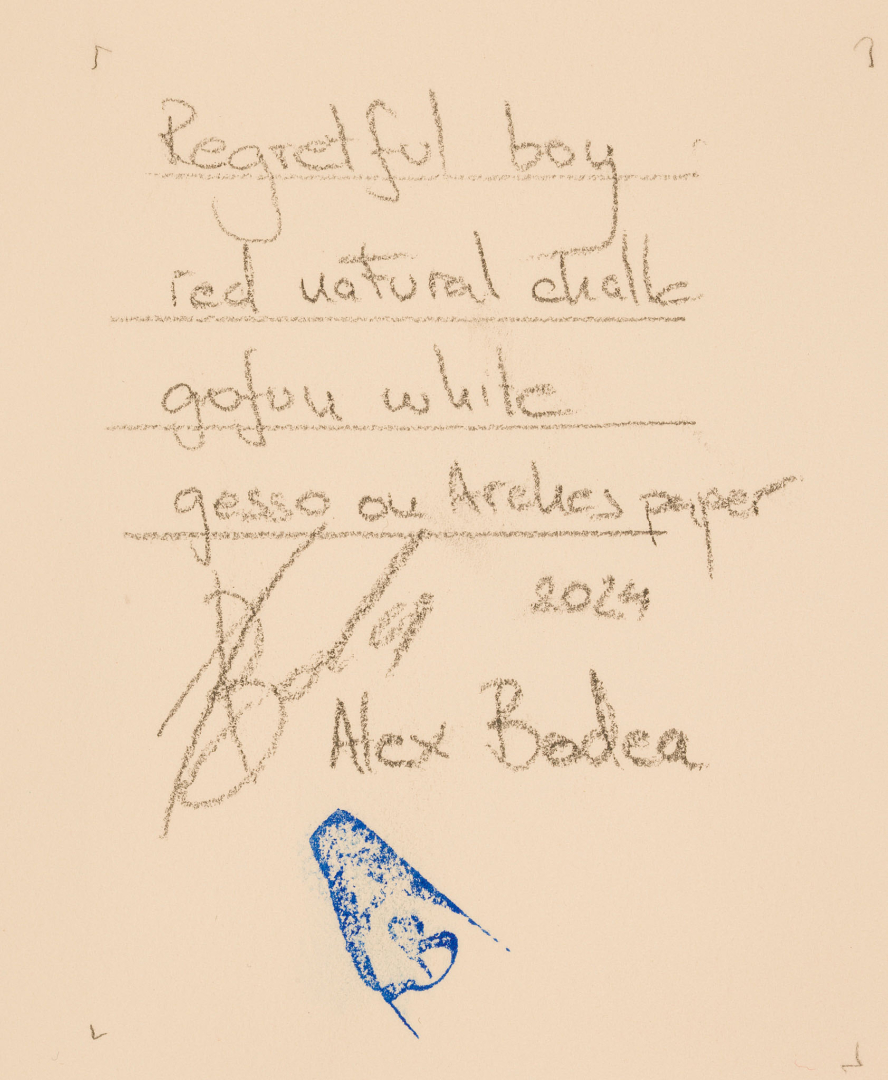 Regretful boy
red natural chalk
gofun white
gesso on Arches paper
2024
Alex Bodea